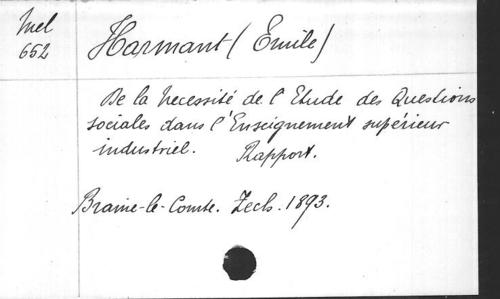 Mel
652
Harmant (Emile)
De la Necessité de l'Etude des Questions
sociales dans l'Enseignement supérieur
industriel. Rapport.
Braine-le-Comte. Zech. 1893.